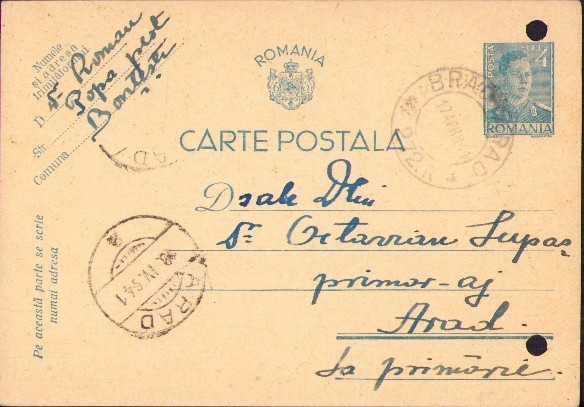 Numele
și adresa
trimițătorului
D. Sr. Roman
Popa prot
Str.
Comuna Bontești
ROMANIA
CARTE POSTALA
POSTA
LEI 4
ROMANIA
BRAD ARAD
Nº 276
ARAD
IV. 941
Pe această parte se scrie
numai adresa
Dsale Dlui
Dr. Octavian Lupaș
primar-aj
Arad.
La primărie.